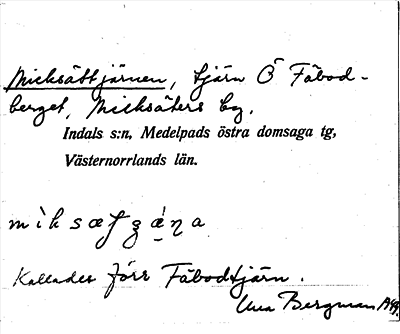 Micksättjärnen, tjärn Ö Fäbod-
berget, Micksäters by,
Indals s:n, Medelpads östra domsaga tg,
Västernorrlands län.
Kallades förr Fäbodtjärn.
Bergman